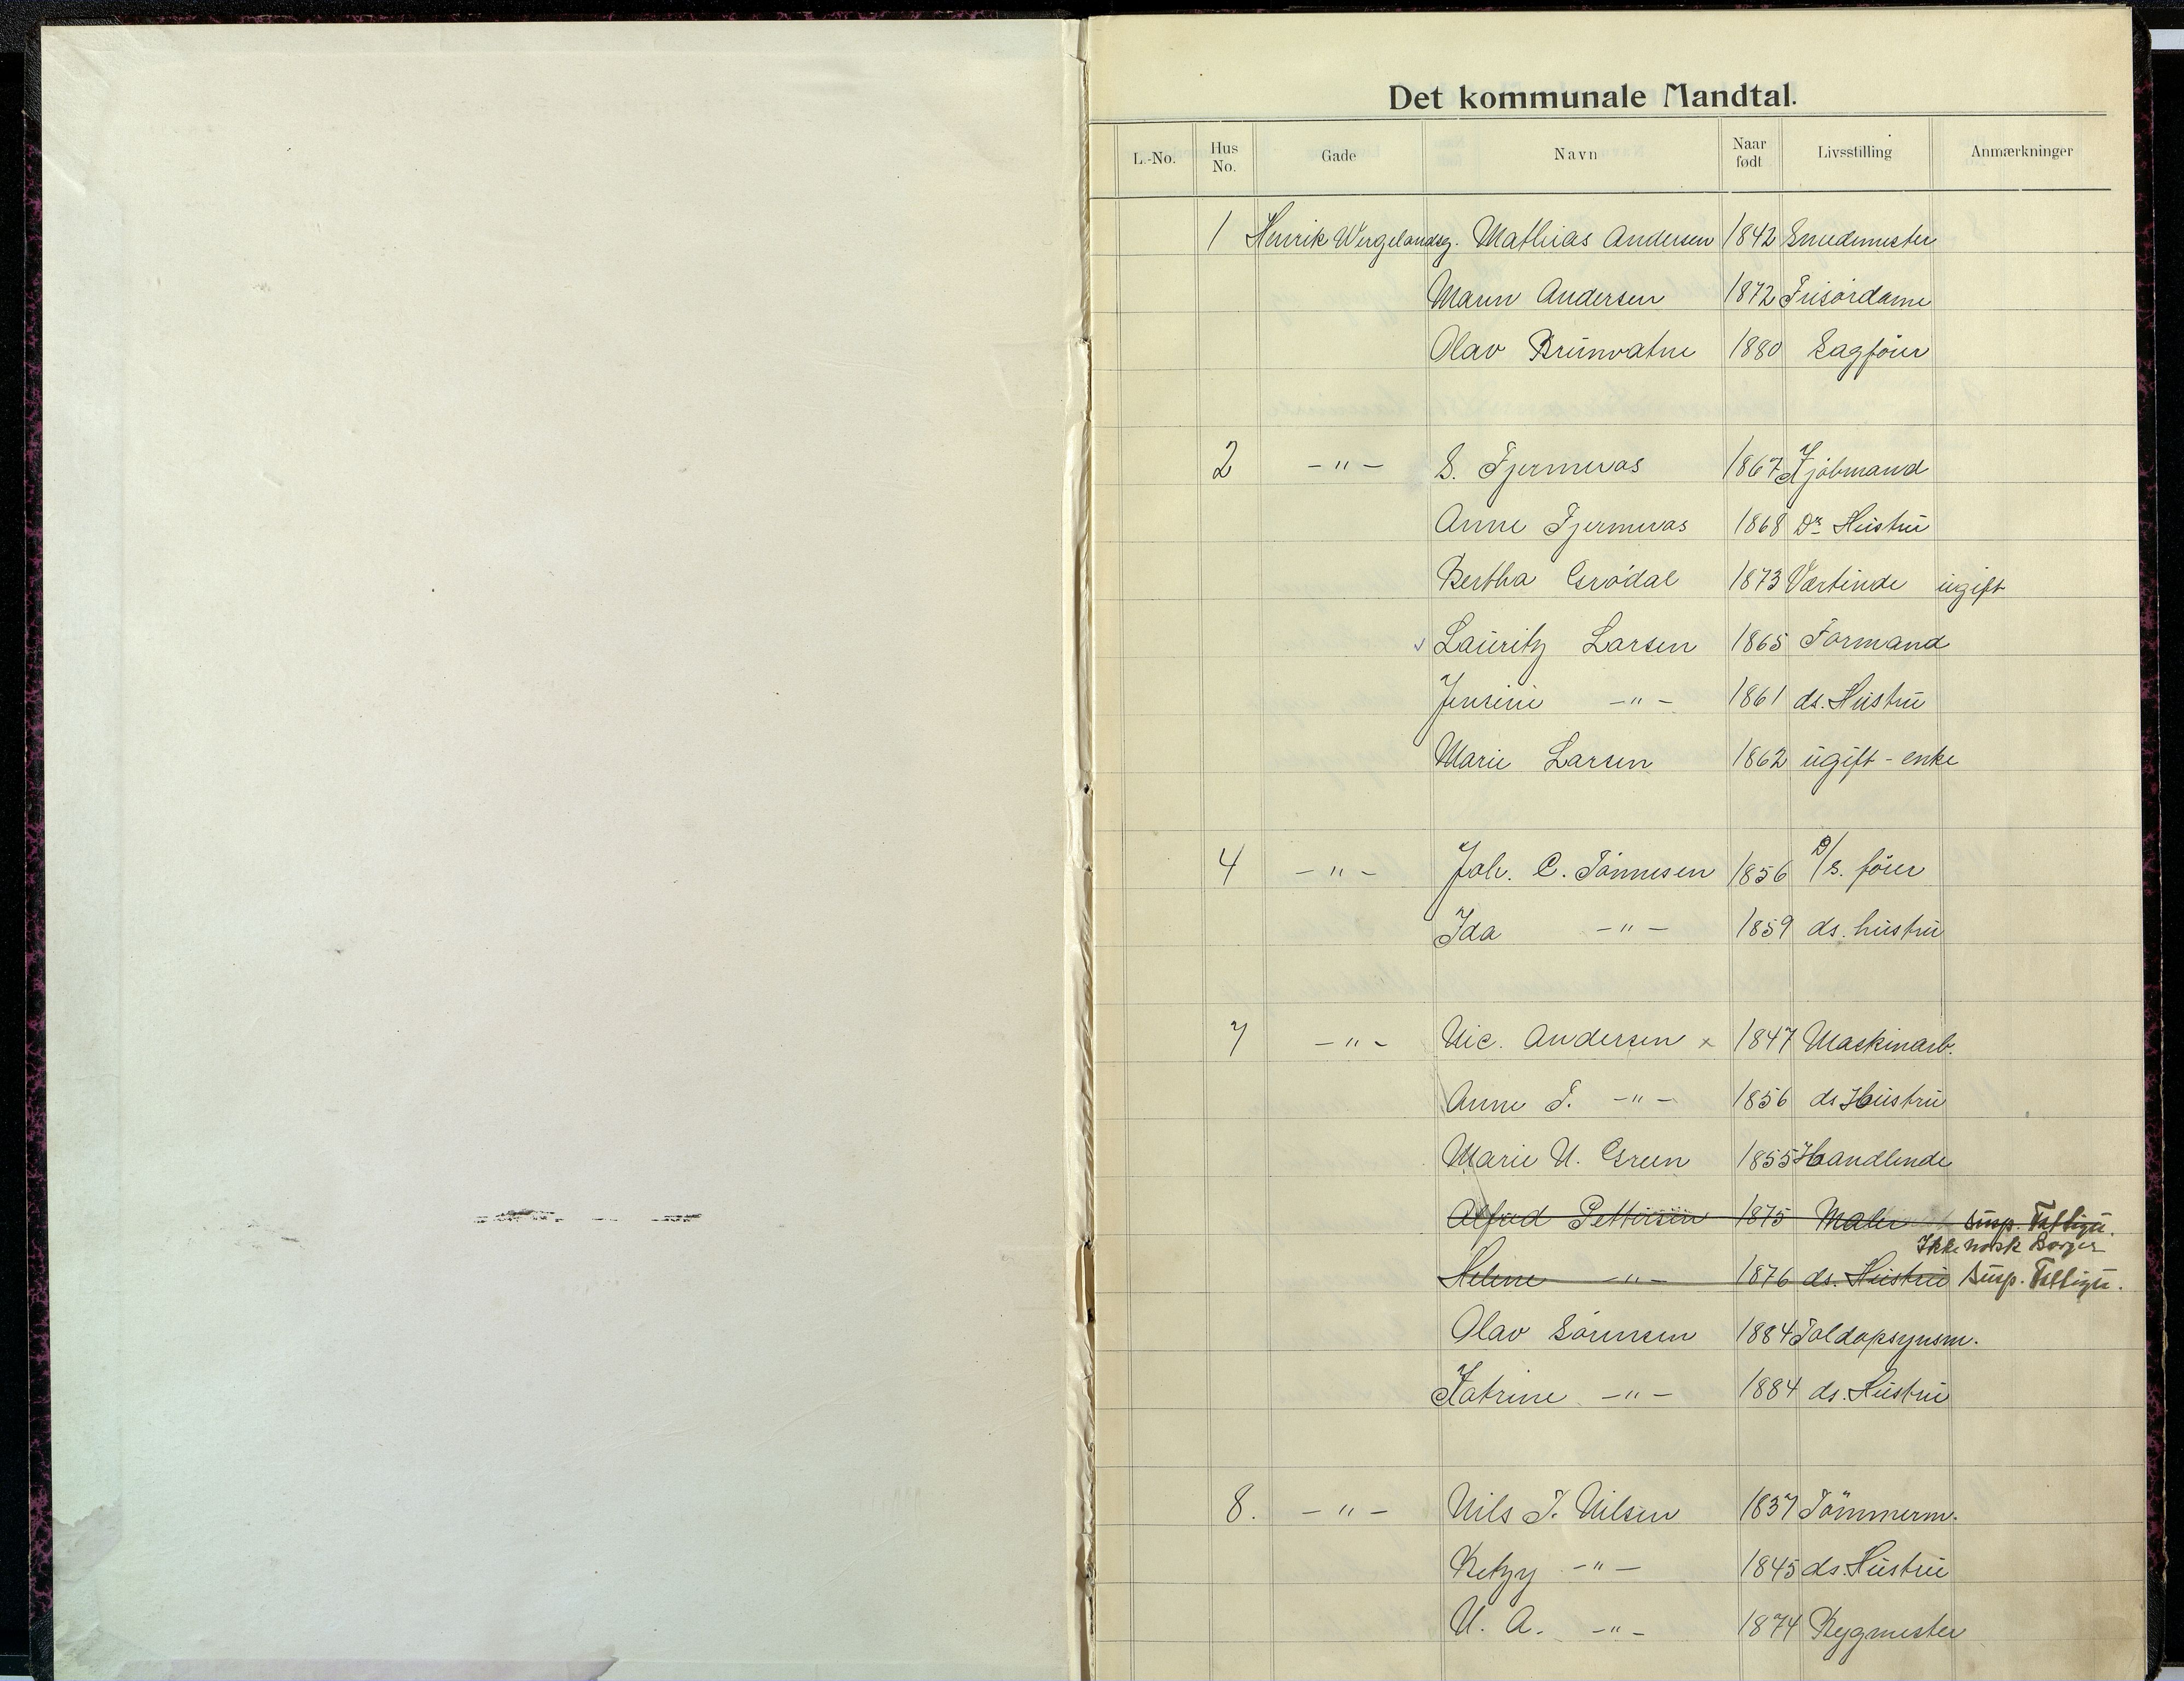 Det kommunale Mandtal.
L.-No. Hus No. Gade Navn Naar født Livsstilling Anmærkninger
1 Henrik Wergelandsg. Mathias Andersen 1842 Smedmester
Maren Andersen 1872 Frisördame
Olav Brünvatne 1880 Sagförer
2 -"- S. Fjermeros 1867 Kjöbmand
Anne Fjermeros 1868 Ds Hüstrü
Bertha Grödal 1873 Værtinde ügift
Laüritz Larsen 1865 Formand
Jensine -"- 1861 ds. Hüstrü
Marie Larsen 1862 ügift - enke
4 -"- Joh. C. Tönnesen 1856 D/s. förer
Ida -"- 1859 ds. hüstrü
7 -"- Nic. Andersen x 1847 Maskinarb.
Anne T. -"- 1856 ds Hüstrü
Marie N. Green 1855 Handlende
Alfred Petterson 1875 Maler Süsp. Fattigü.
Ikke norsk Borger
Helene -"- 1876 ds. Hüstrü Süsp. Fattigü.
Olav Sörensen 1884 Toldopsynsm.
Katrine -"- 1884 ds. Hüstrü
8. -"- Nils T. Nilsen 1837 Tömmerm.
Betzy -"- 1845 ds. Hüstrü
N. A. -"- 1874 Bygmester